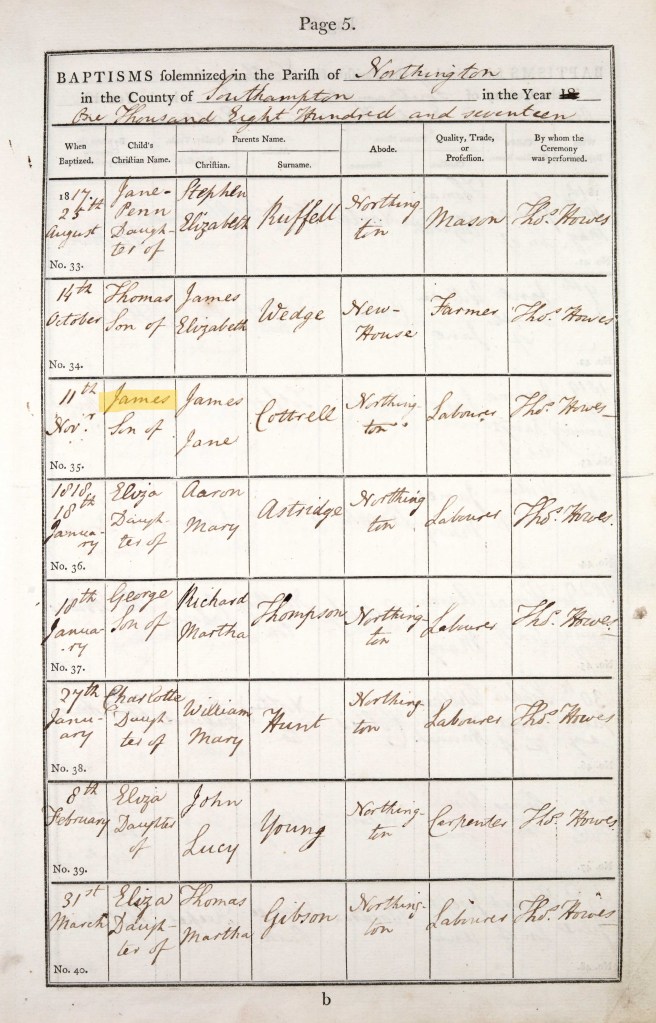 Page 5.
BAPTISMS solemnized in the Parish of Northington
in the County of Southampton in the Year 18
One Thousand Eight Hundred and seventeen
When Baptized. Child's Christian Name. Parents Name. Christian. Surname. Abode. Quality, Trade, or Profession. By whom the Ceremony was performed.
1817 25th August No. 33. Jane-Penn Daughter of Stephen Elizabeth Ruffell Northington Mason Thos. Howes
14th October No. 34. Thomas Son of James Elizabeth Wedge New-House Farmer Thos. Howes
11th Novr. No. 35. James Son of James Jane Cottrell Northington Labourer Thos. Howes
1818. 18th January No. 36. Eliza Daughter of Aaron Mary Astridge Northington Labourer Thos. Howes
18th January No. 37. George Son of Richard Martha Thompson Northington Labourer Thos. Howes
27th January No. 38. Charlotte Daughter of William Mary Hunt Northington Labourer Thos. Howes
8th February No. 39. Eliza Daughter of John Lucy Young Northington Carpenter Thos. Howes
31st March No. 40. Eliza Daughter of Thomas Martha Gibson Northington Labourer Thos. Howes
b